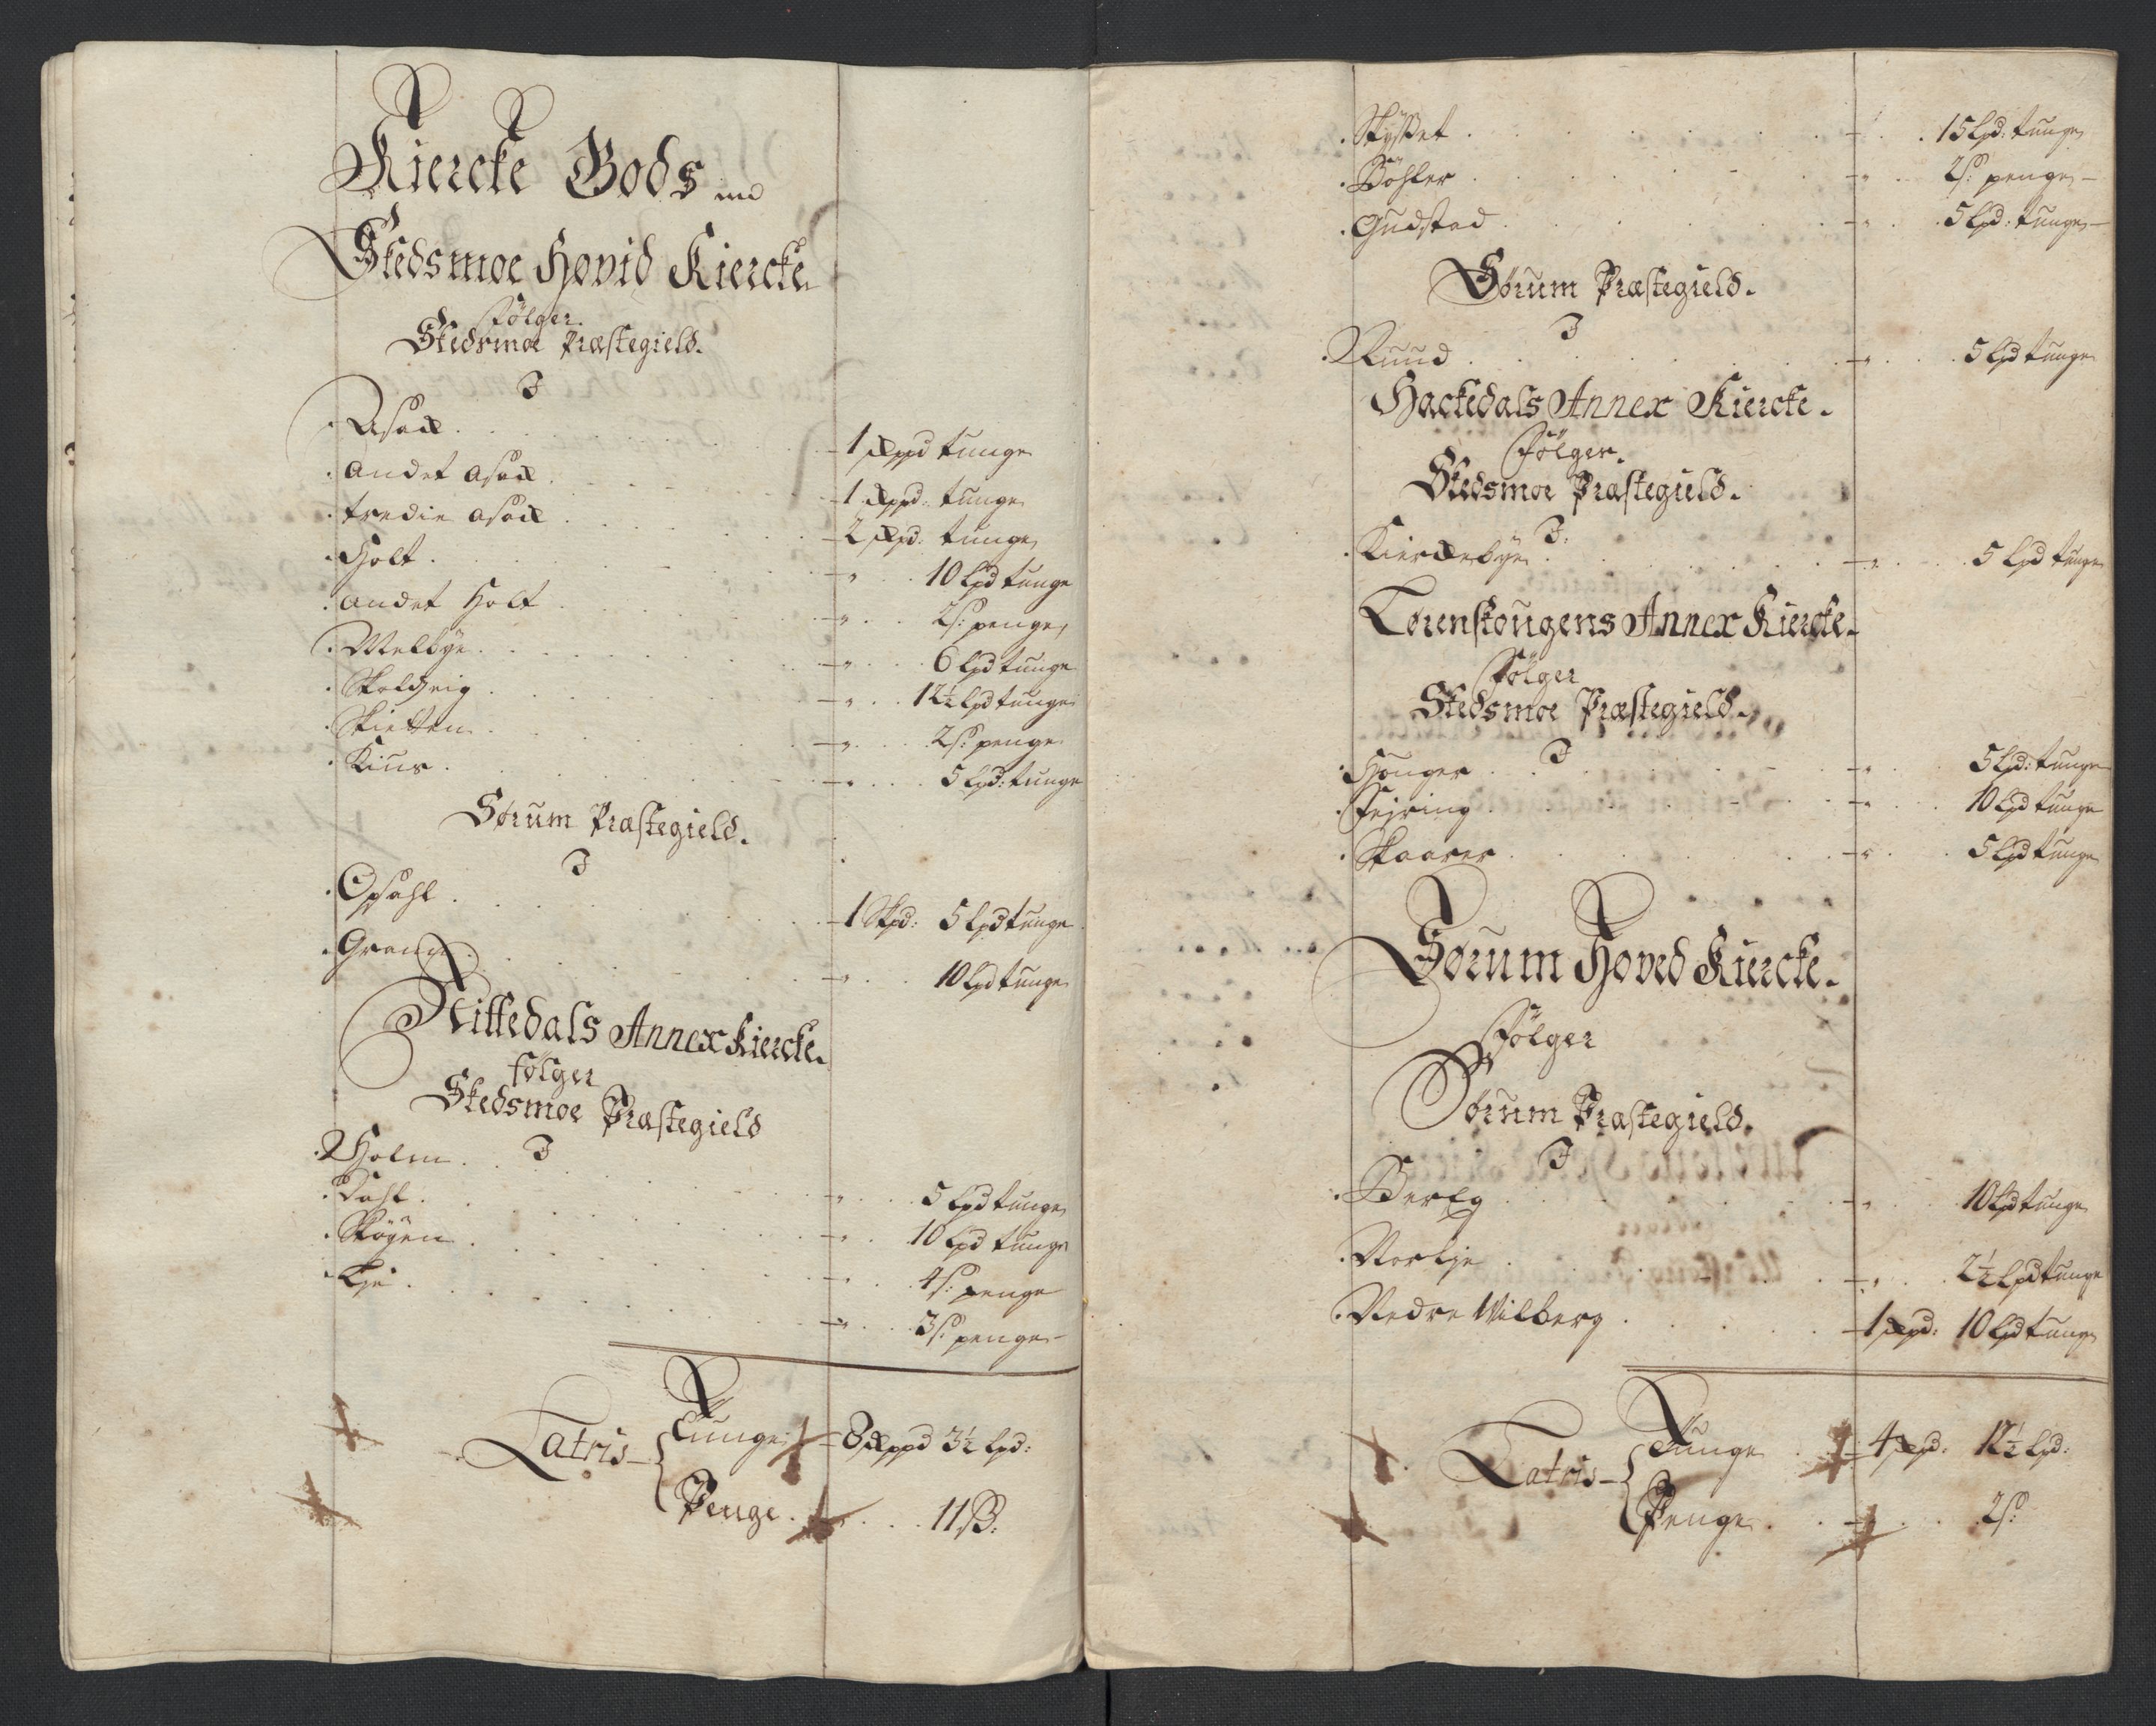 Kiercke Gods
Skedsmoe Hovid Kiercke
Følger
Skedsmoe Præstegield.
I
Asack . 1 Skppd tunge
Andet Asack . 1 Skppd: tunge
tredie Asack . 2 Skpd: tunge
Holt . 10 Lpd tunge
Andet Holt . 2 s: penge
Melbye . 6 Lpd tunge
Skoldvig . 12½ Lpd tunge
Skietten . 2 s: penge
Kius . 5 Lpd: tunge
Sørum Præstegield.
I
Opsahl . 1 Skpd: 5 Lpd tunge
Gran . 10 Lpd tunge
Nittedals Annex Kiercke.
følger
Skedsmoe Præstegield
I
Holm . 5 Lpd tunge
Dahl . 10 Lpd tunge
Skøyen . 4 s: penge
Lje . 3 s: penge
Latris Tunge 8 Skppd 3½ Lpd:
Penge . 11 ß:
Skysset . 15 Lpd: tunge
Bøhler . 2 s: penge
Gudstad . 5 Lpd: tunge
Sørum Præstegield.
I
Ruud . 5 Lpd tunge
Hackedals Annex Kiercke.
Følger.
Skedsmoe Præstegield.
I:
Kierckebye . 5 Lpd tunge
Lørenskougens Annex Kiercke.
Følger
Skedsmoe Præstegield.
I
Hønger . 5 Lpd: tunge
Fejring . 10 Lpd tunge
Skaarer . 5 Lpd tunge
Sørum Hoved Kiercke.
Følger
Sørum Præstegield.
I
Berlg . 10 Lpd tunge
Norlye . 2½ Lpd tunge
Nedre Wilberg . 1 Skpd: 10 Lpd tunge
Latris Tunge . 4 Skpd: 12½ Lpd:
Penge . 2 s: